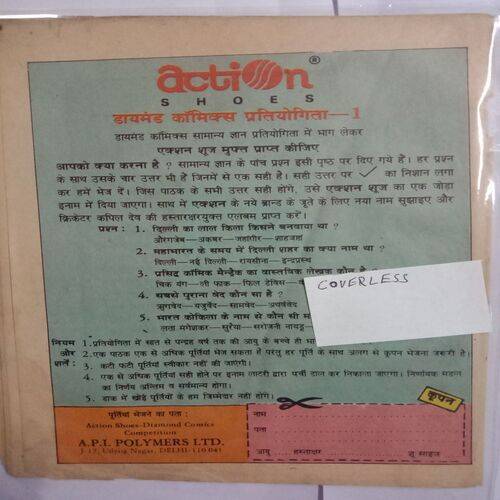 action®
SHOES
डायमंड कॉमिक्स प्रतियोगिता—1
डायमंड कॉमिक्स सामान्य ज्ञान प्रतियोगिता में भाग लेकर
एक्शन शूज मुफ्त प्राप्त कीजिए
आपको क्या करना है ? सामान्य ज्ञान के पांच प्रश्न इसी पृष्ठ पर दिए गये हैं। हर प्रश्न
के साथ उसके चार उत्तर भी हैं जिनमें से एक सही है। सही उत्तर पर ✓ का निशान लगा
कर हमें भेज दें। जिस पाठक के सभी उत्तर सही होंगे, उसे एक्शन शूज का एक जोड़ा
इनाम में दिया जाएगा। साथ में एक्शन के नये ब्रान्ड के जूते के लिए नया नाम सुझाइए और
क्रिकेटर कपिल देव की हस्ताक्षरयुक्त एलबम प्राप्त करें।
प्रश्न : 1. दिल्ली का लाल किला किसने बनवाया था ?
औरंगजेब—अकबर—जहांगीर—शाहजहां
2. महाभारत के समय में दिल्ली शहर का क्या नाम था ?
दिल्ली—नई दिल्ली—रायसीना—इन्द्रप्रस्थ
3. प्रसिद्ध कॉमिक मैन्ड्रेक का वास्तविक लेखक कौन है
चिक यंग—ली फाक—फिल डेविस
4. सबसे पुराना वेद कौन सा है ?
ऋग्वेद—यजुर्वेद—सामवेद—अथर्ववेद
5. भारत कोकिला के नाम से कौन सी
लता मंगेशकर—सुरैया—सरोजनी नायडू
COVERLESS
नियम 1. प्रतियोगिता में सात से पन्द्रह वर्ष तक की आयु के बच्चे ही
और 2. एक पाठक एक से अधिक पूर्तियां भेज सकता है परंतु हर पूर्ति के साथ अलग से कूपन भेजना जरूरी है।
शर्तें : 3. कटी फटी पूर्तियां स्वीकार नहीं की जाएंगी।
4. एक से अधिक पूर्तियां सही होने पर इनाम लाटरी द्वारा पर्ची डाल कर निकाला जाएगा। निर्णायक मंडल
का निर्णय अन्तिम व सर्वमान्य होगा।
5. डाक में खोई पूर्तियों के हम जिम्मेदार नहीं होंगे।
कूपन
पूर्तियां भेजने का पता :
Action Shoes-Diamond Comics
Competition
A.P.I. POLYMERS LTD.
J-17, Udyog Nagar, DELHI-110 041
नाम
पता
आयु हस्ताक्षर शू साइज